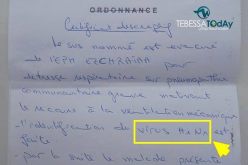 ORDONNANCE
TEBESSA TODAY
Certificat
Le sus nommé est evacué
de l'EPH
détresse respiratoire sur pneumopathie
communautaire grave motivant
le recours à la ventilation mécanique
l'identification de virus H1N1 est
faite
par la suite le malade présente